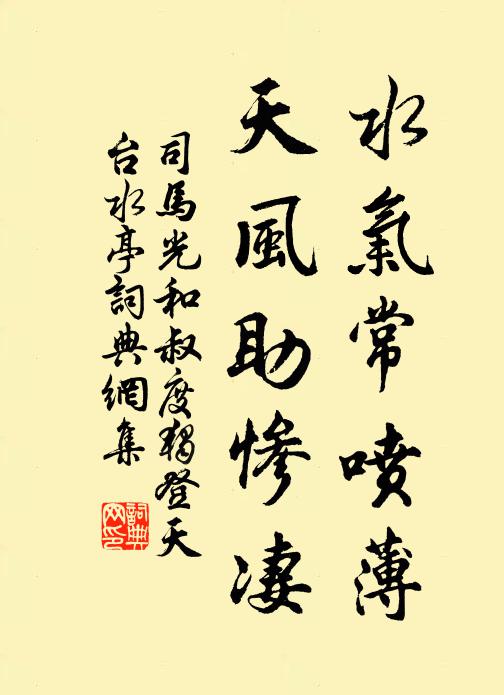 水氣常噴薄
天風助慘凄
司馬光和叔度獨登天
台水亭詞典網集
詞典
网印